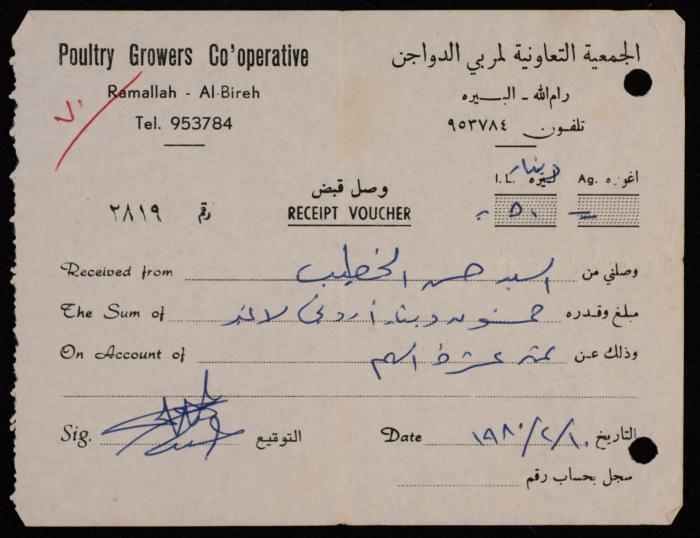 Poultry Growers Co'operative
Ramallah - Al-Bireh
Tel. 953784
الجمعية التعاونية لمربي الدواجن
رام الله - البــيره
تلفـون ٩٥٣٧٨٤
دينار
I.L. ليره Ag. اغوره
٥٠
وصل قبض
RECEIPT VOUCHER
رقم ٢٨١٩
Received from السيد حسن الخطيب وصلني من
The Sum of خمسون دينار أردني لا غير مبلغ وقدره
On Account of ثمن عشرة أسهم وذلك عـن
Sig. التوقيع
Date ١٩٨٠/٢/١٠ التاريخ
سجل بحساب رقم